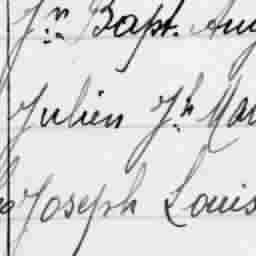 Jn Bapt. Aug
Julien Jh Mau
Joseph Louis